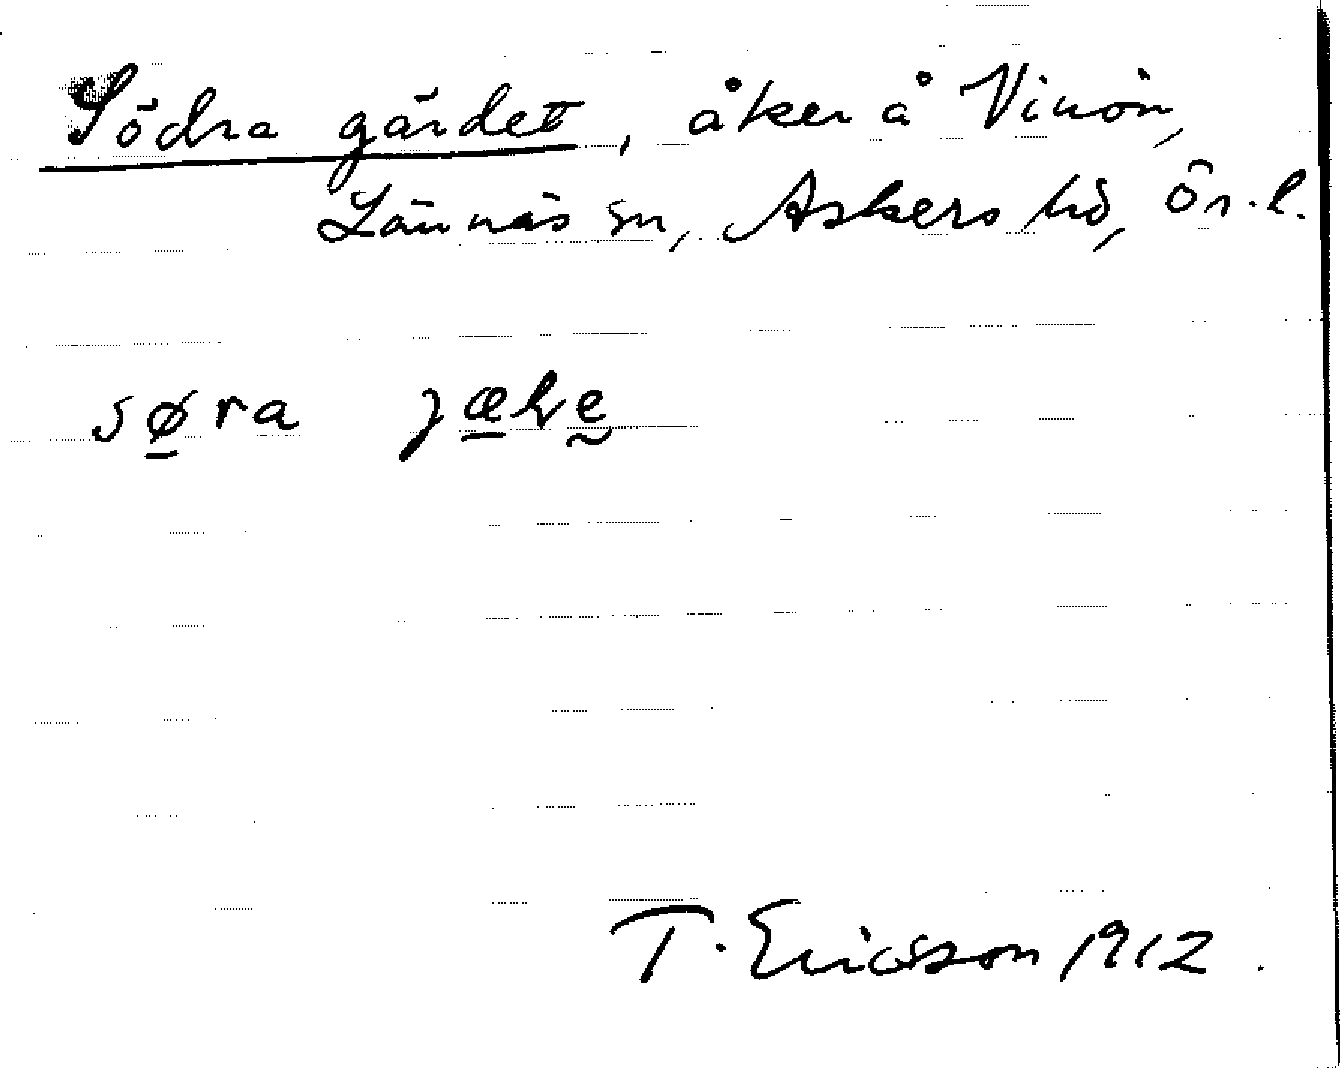 Södra gärdet, åker å Vinön,
Lännäs sn, Askers hd, Ör. l.
søra jæḷe
T. Ericsson 1912.